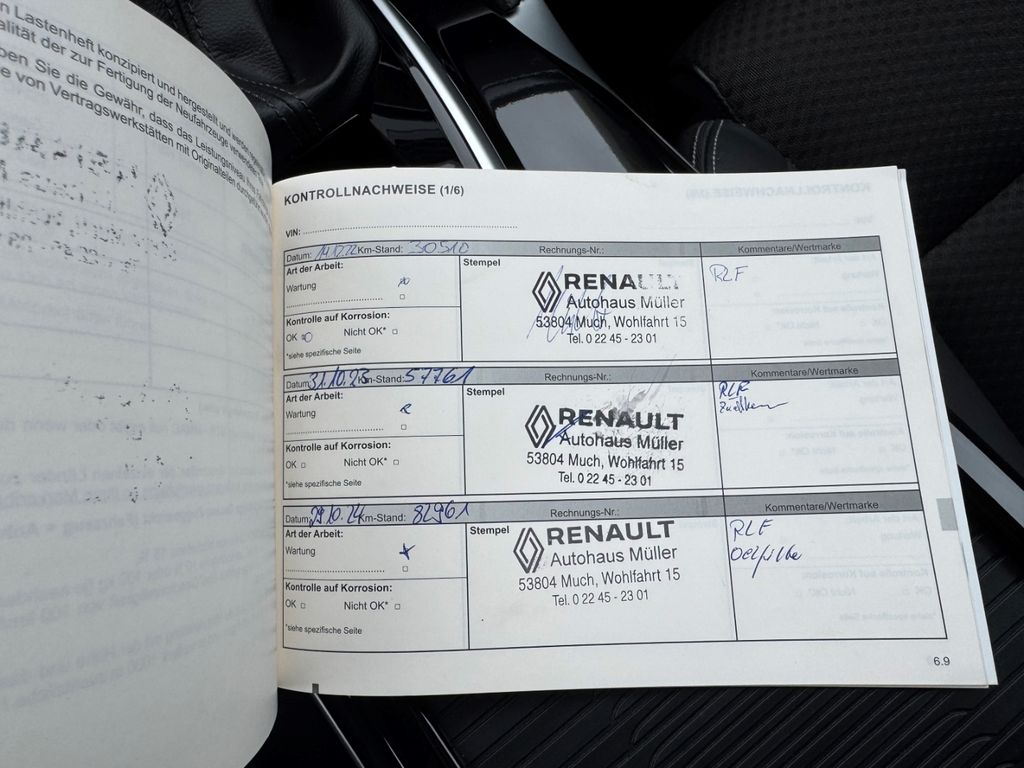 n Lastenheft konzipiert und hergestellt und werden
alität der zur Fertigung der Neufahrzeuge verwendeten
ben Sie die Gewähr, dass das Leistungsniveau Ihres
e von Vertragswerkstätten mit Originalteilen durchgeführt
KONTROLLNACHWEISE (1/6)
VIN:
Datum: Km-Stand: 30510 Rechnungs-Nr.: Kommentare/Wertmarke
Art der Arbeit: Stempel RLF
Wartung RENAULT
Autohaus Müller
Kontrolle auf Korrosion: 53804 Much, Wohlfahrt 15
OK Nicht OK* Tel. 0 22 45 - 23 01
*siehe spezifische Seite
Datum: 31.10.23 Km-Stand: 57761 Rechnungs-Nr.: Kommentare/Wertmarke
Art der Arbeit: Stempel RLF
Wartung RENAULT
Autohaus Müller
Kontrolle auf Korrosion: 53804 Much, Wohlfahrt 15
OK Nicht OK* Tel. 0 22 45 - 23 01
*siehe spezifische Seite
Datum: 29.10.24 Km-Stand: 82961 Rechnungs-Nr.: Kommentare/Wertmarke
Art der Arbeit: Stempel RENAULT RLF
Wartung Autohaus Müller
53804 Much, Wohlfahrt 15
Kontrolle auf Korrosion: Tel. 0 22 45 - 23 01
OK Nicht OK*
*siehe spezifische Seite
6.9